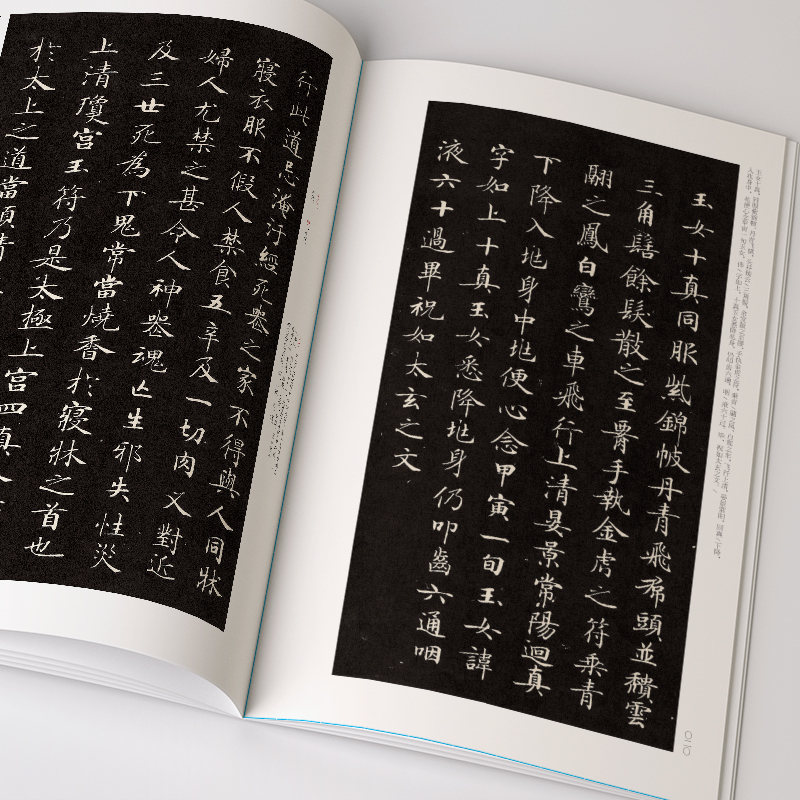 玉女十真同服紫錦帔丹青飛帬頭並積雲
三角髻餘髮散之至腰手執金虎之符乘青
翮之鳳白鸞之車飛行上清晏景常陽迴真
下降入某身中某便心念甲寅一旬玉女諱
字如上十真玉女悉降某身仍叩齒六通咽
液六十過畢祝如太玄之文
〇二〇
行此道忌淹汙經死喪之家不得與人同牀
寢衣服不假人禁食五辛及一切肉又對近
婦人尤禁之甚令人神喪魂亡生邪失性災
及三世死為下鬼常當燒香於寢牀之首也
上清瓊宮玉符乃是太極上宮四真人
於太上之道當須